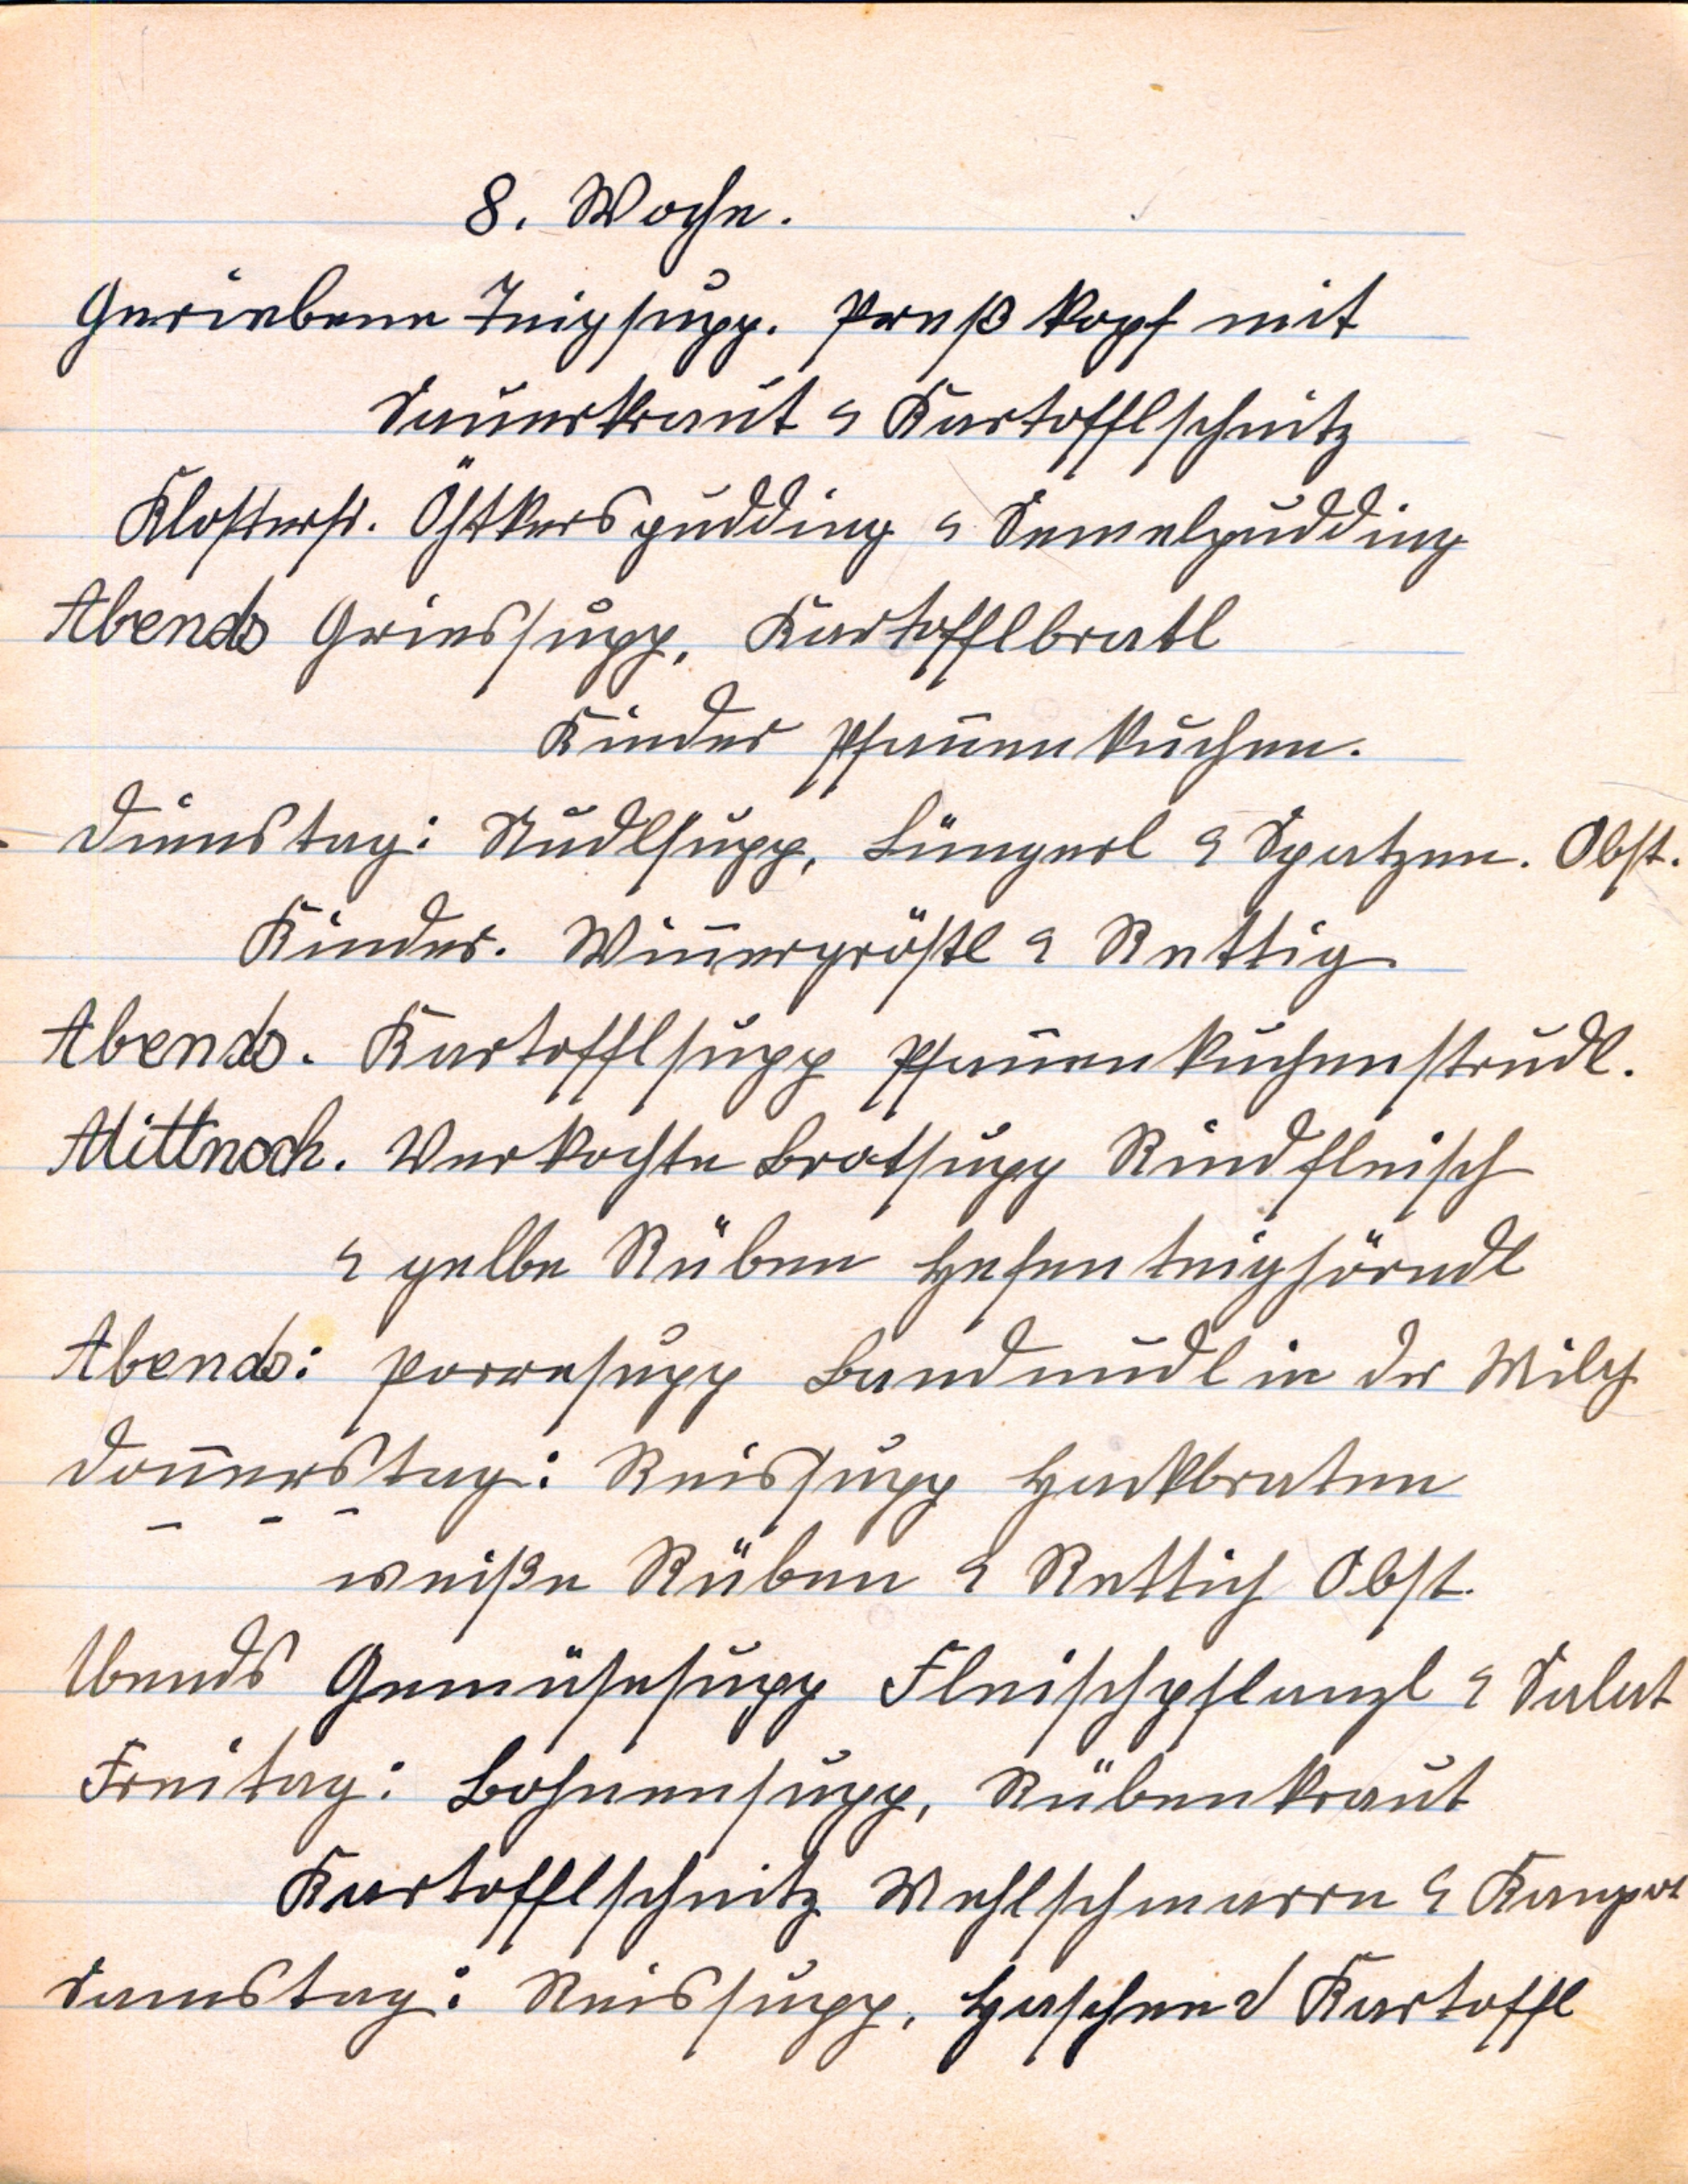 8. Woche.
Geriebene Teigsupp. Preßkopf mit
Sauerkraut u Kartofflschnitz
Klosterfr. Öhtkerspudding u Semelpudding
Abends Griessupp, Kartofflbratl
Kinder Pfan̄enkuchen.
Dienstag: Nudlsupp, Lüngerl u Spatzen. Obst.
Kinder. Win̄ergröstl u Rettig
Abends. Kartofflsupp Pfan̄enkuchenstrudl.
Mittwoch. Verkochte Brotsupp Rindfleisch
u gelbe Rüben Hefenteighörndl
Abends: Porresupp Bandnudl in der Milch
Don̄erstag: Reissupp Hackbraten
weiße Rüben u Rettich Obst.
Abends Gemüsesupp Fleischpflanzl u Salat
Freitag: Bohnensupp, Rübenkraut
Kartofflschnitz Mehlschmarrn u Kompot
Samstag: Reissupp, Haschee u Kartoffl